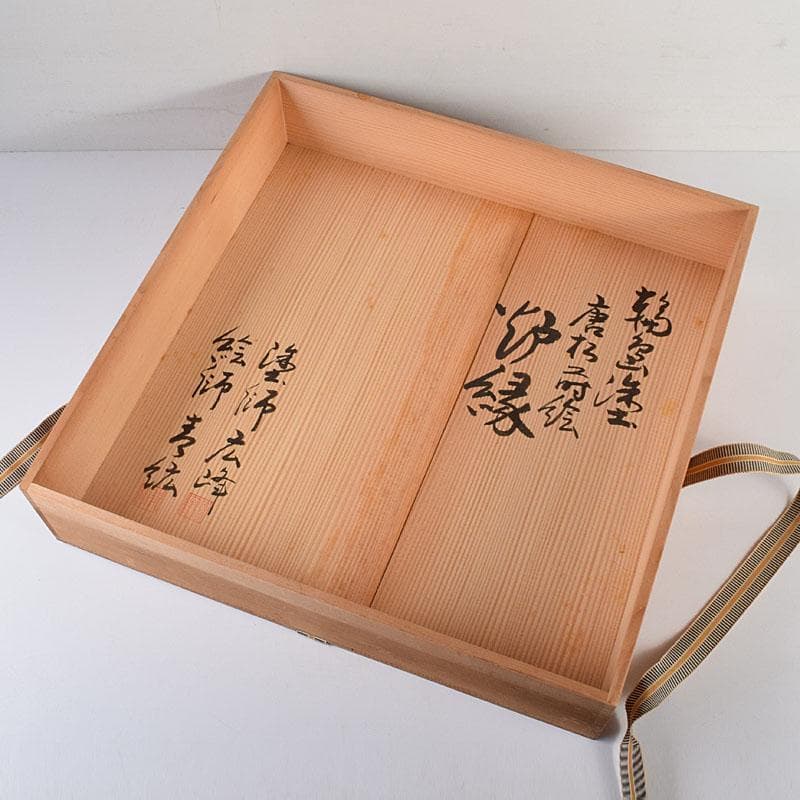 輪島塗
唐松蒔絵
炉縁
塗師 広峰
絵師 青紘